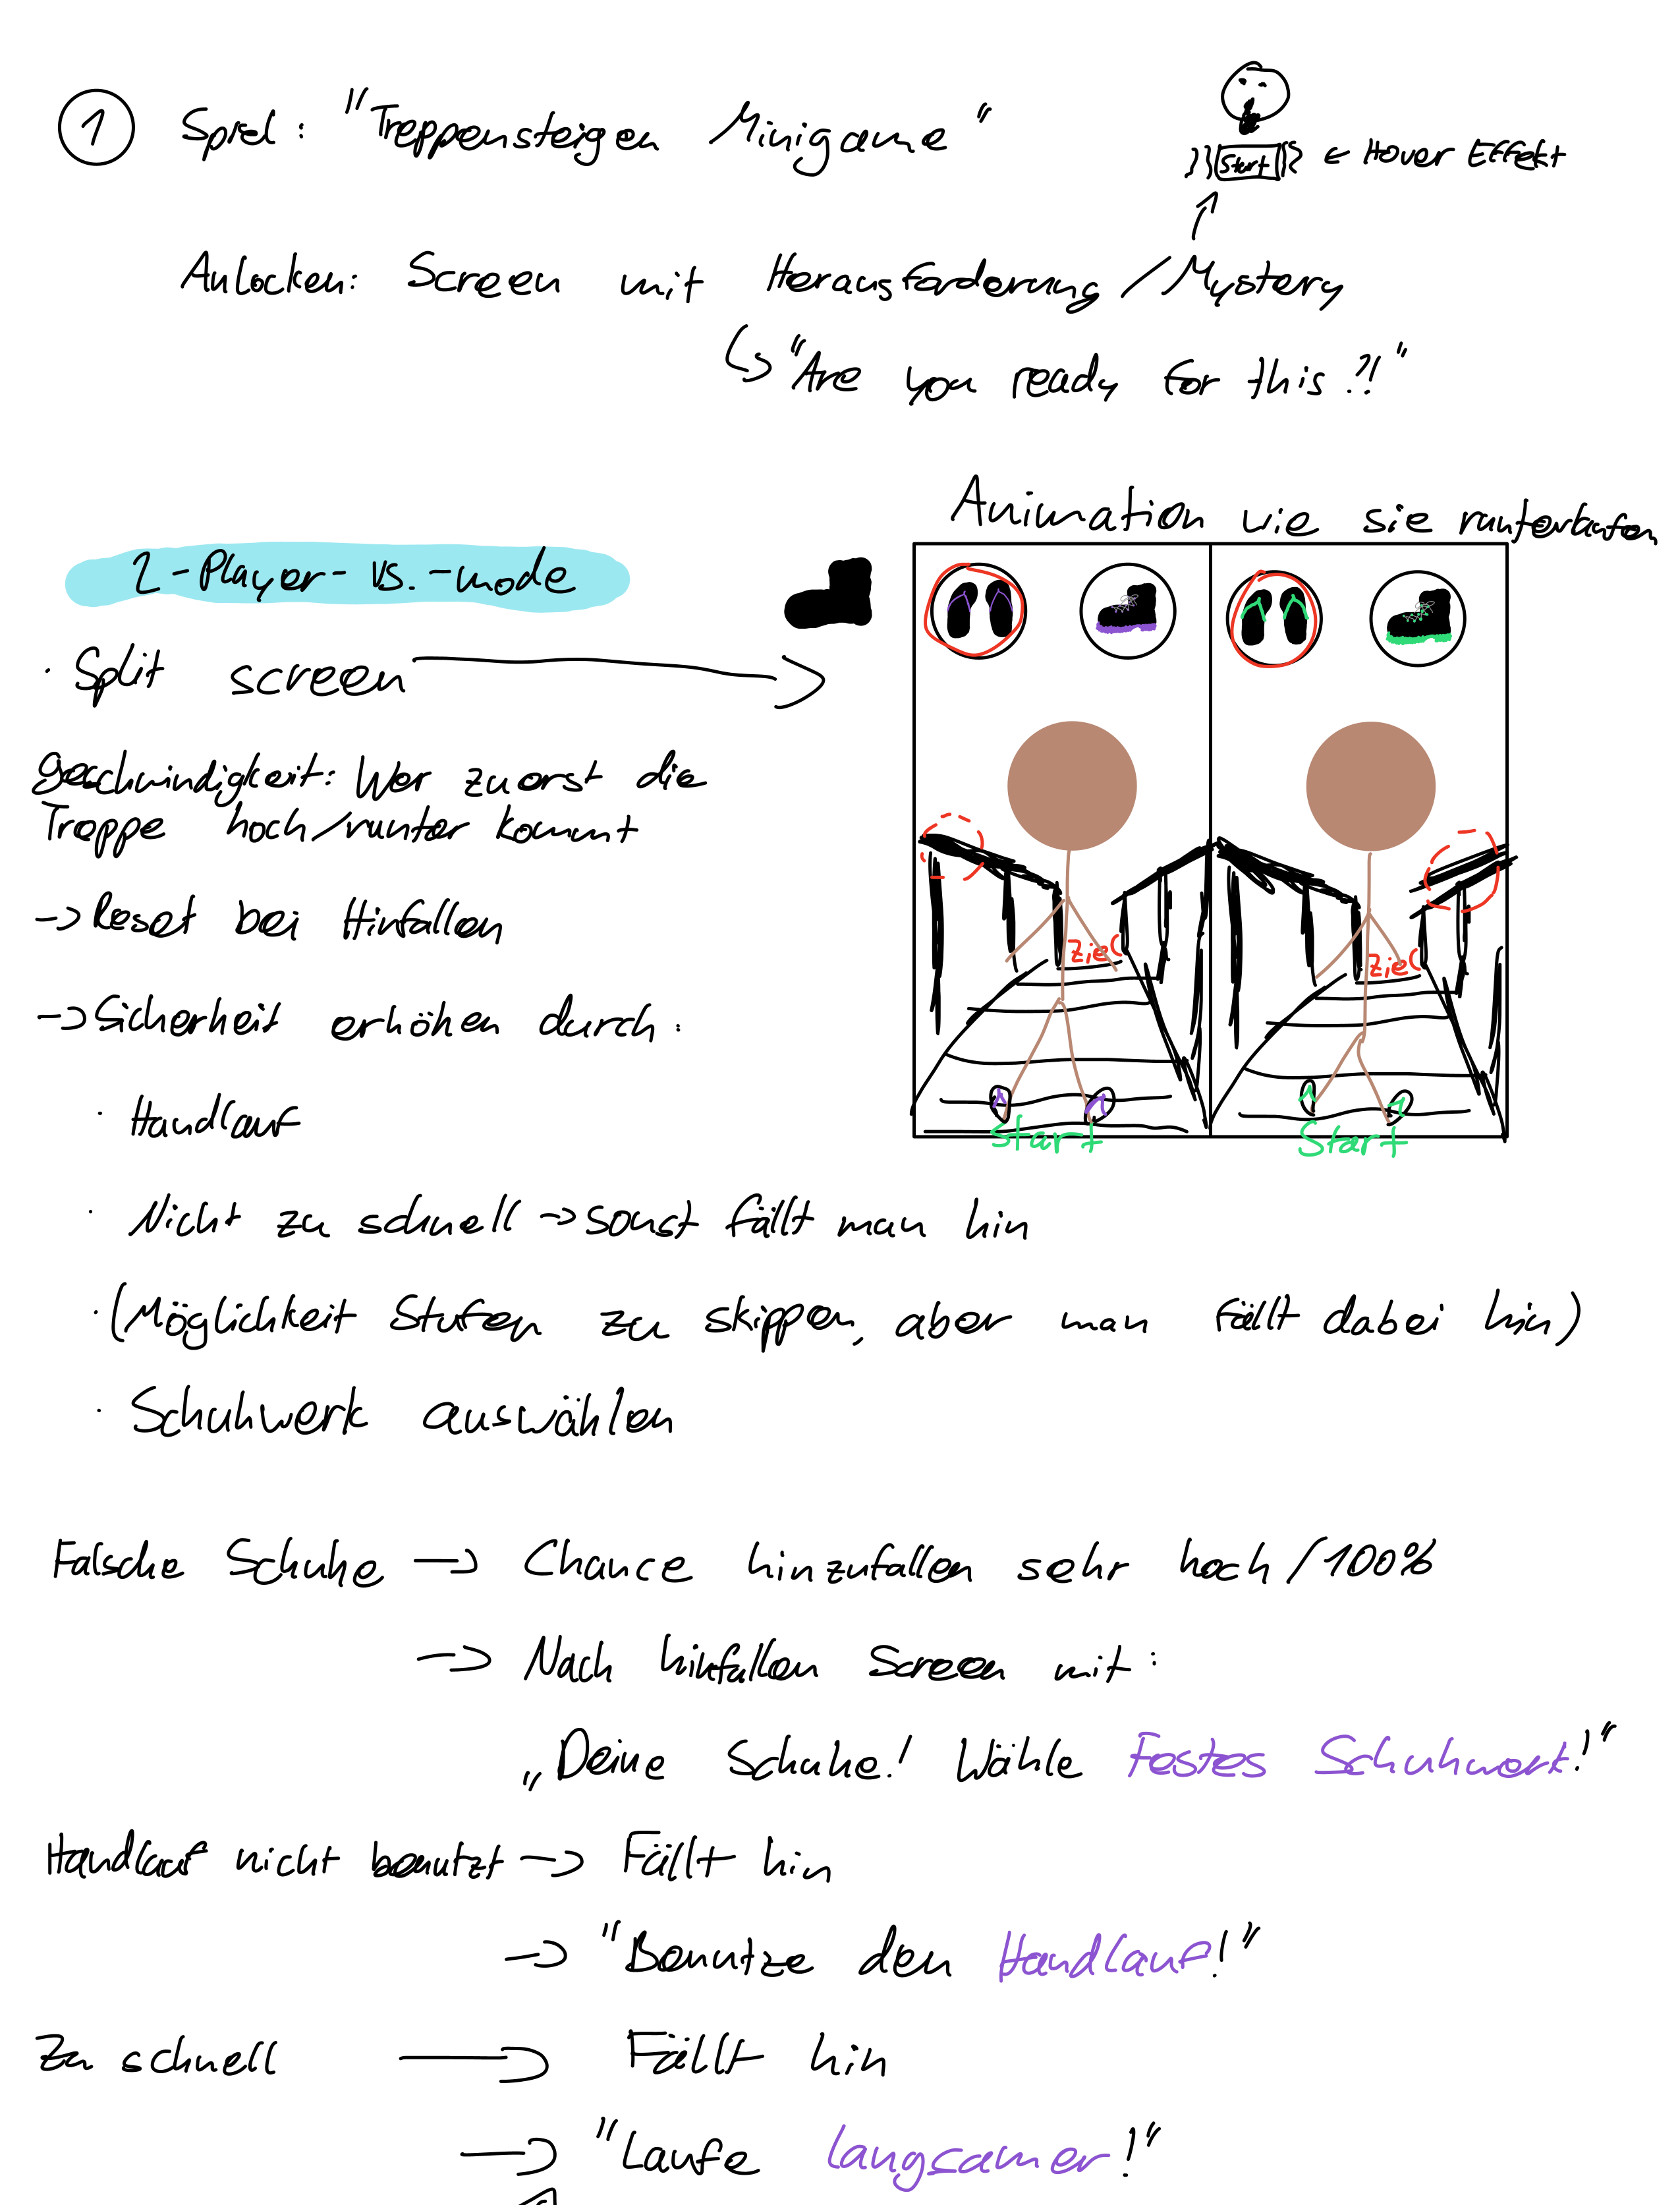 ① Spiel: "Treppensteigen Minigame"
Start ← Hover Effekt
Anlocken: Screen mit Herausforderung / Mystery
↳ "Are you ready for this?!"
Animation wie sie runterlaufen
2-Player-vs.-mode
· Split screen →
Geschwindigkeit: Wer zuerst die
Treppe hoch/runter kommt
→ Reset bei Hinfallen
→ Sicherheit erhöhen durch:
Ziel
Ziel
Start
Start
· Handlauf
· Nicht zu schnell → sonst fällt man hin
· (Möglichkeit Stufen zu skippen, aber man fällt dabei hin)
· Schuhwerk auswählen
Falsche Schuhe → Chance hinzufallen sehr hoch/100%
→ Nach hinfallen Screen mit:
„Deine Schuhe! Wähle Festes Schuhwerk!"
Handlauf nicht benutzt → Fällt hin
→ "Benutze den Handlauf!"
Zu schnell → Fällt hin
→ "Laufe langsamer!"